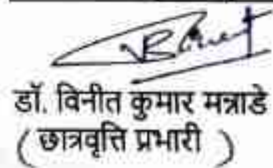 डॉ. विनीत कुमार मन्नाडे
( छात्रवृत्ति प्रभारी )